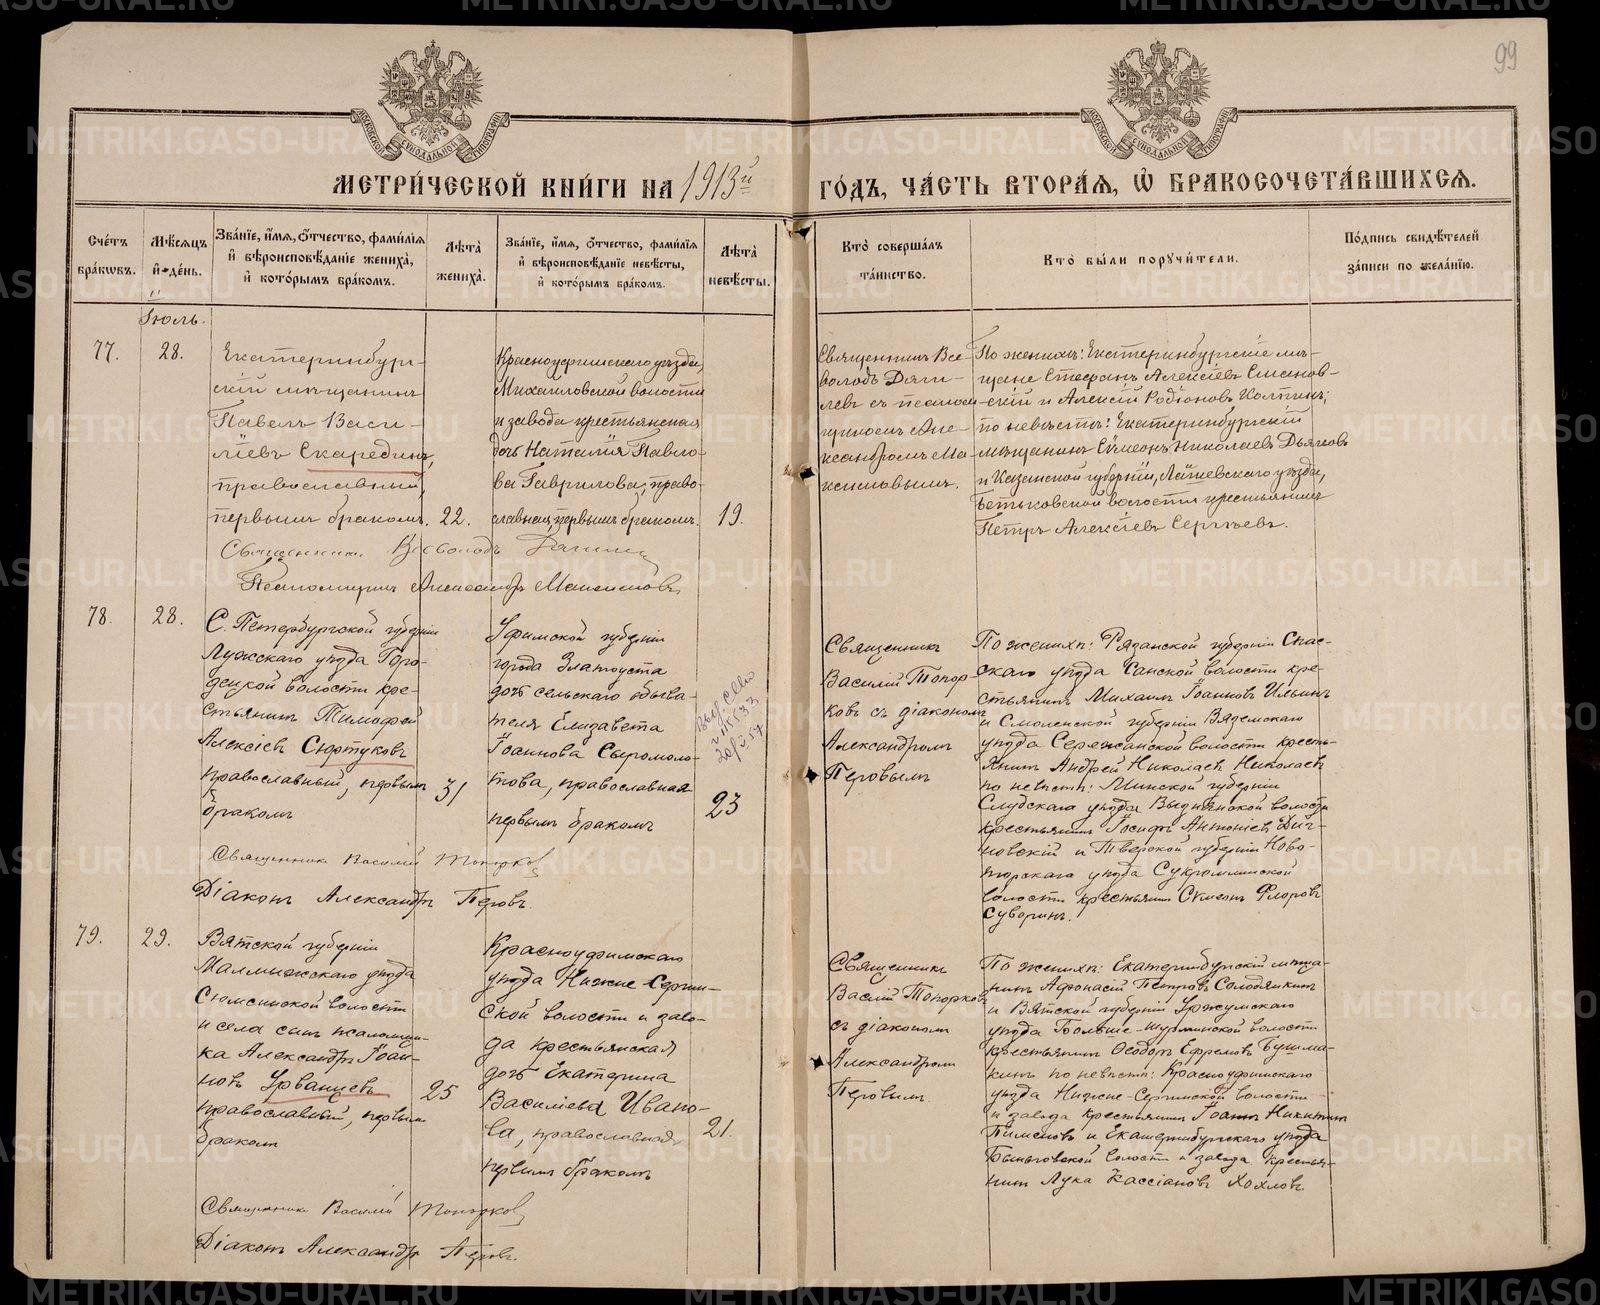 99
МОСКОВСКОЙ СѴНОДАЛЬНОЙ ТИПОГРАФІИ
МОСКОВСКОЙ СѴНОДАЛЬНОЙ ТИПОГРАФІИ
МЕТРИ́ЧЕСКОЙ КНИ́ГИ НА 1913й ГО́ДЪ, ЧА́СТЬ ВТОРА́Я, Ѡ БРАКОСОЧЕТА́ВШИХСЯ.
Сче́тъ бра́кѡвъ.
Мѣ́сяцъ и де́нь.
Зва́нїе, и́мя, ѻ́тчество, фами́лїя и вѣроисповѣ́данїе жениха̀, и кото́рымъ бра́комъ.
Лѣ́та жениха̀.
Зва́нїе, и́мя, ѻ́тчество, фами́лїя и вѣроисповѣ́данїе невѣ́сты, и кото́рымъ бра́комъ.
Лѣ́та невѣ́сты.
Кто̀ соверша́лъ та́инство.
Кто̀ бы́ли поручи́тели.
По́дпись свидѣ́телей за́писи по жела́нїю.
Іюль.
77.
28.
Екатеринбург-
скій мѣщанинъ
Павелъ Васи-
ліевъ Скарединъ,
православный,
первымъ бракомъ.
22.
Красноуфимскаго уѣзда,
Михайловской волости
и завода крестьянская
дочь Наталія Павло-
ва Гаврилова, право-
славная, первымъ бракомъ.
19.
Священникъ Все-
володъ Дяги-
левъ съ псалом-
щикомъ Але-
ксандромъ Ма-
ксимовымъ.
По женихѣ: Екатеринбургскіе мѣ-
щане Стефанъ Алексіевъ Симанов-
скій и Алексій Родіоновъ Колпинъ;
по невѣстѣ: Екатеринбургскій
мѣщанинъ Сѵмеонъ Николаевъ Дьячковъ
и Казанской губерніи, Лаишевскаго уѣзда,
Бетьковской волости крестьянинъ
Петръ Алексіевъ Сергѣевъ.
Священникъ Всеволодъ
Псаломщикъ Александръ Максимовъ
78.
28.
С. Петербургской губерніи
Лужскаго уѣзда Горо-
децкой волости кре-
стьянинъ Тимофей
Алексіевъ Сюртуковъ
православный, первымъ
бракомъ
31
Уфимской губерніи
города Златоуста
дочь сельскаго обыва-
теля Елизавета
Іоаннова Сыромоло-
това, православная
первымъ бракомъ
23
Священникъ
Василій Топор-
ковъ съ діакономъ
Александромъ
Перовымъ
По женихѣ: Рязанской губерніи Спас-
скаго уѣзда Санской волости кре-
стьянинъ Михаилъ Іоанновъ Ильинъ
и Смоленской губерніи Вяземскаго
уѣзда Сережанской волости кресть-
янинъ Андрей Николаевъ Николаевъ
по невѣстѣ: Минской губерніи
Слуцкаго уѣзда волости
крестьянинъ Іосифъ Антоніевъ
и Тверской губерніи Ново-
торскаго уѣзда Сукромлинской
волости крестьянинъ Сѵмеонъ Флоровъ
Суворинъ.
Священникъ Василій Топорковъ
Діаконъ Александръ Перовъ.
79.
29.
Вятской губерніи
Малмыжскаго уѣзда
Сюмсинской волости
и села сынъ псаломщи-
ка Александръ Іоан-
новъ Урванцевъ
православный, первымъ
бракомъ
25
Красноуфимскаго
уѣзда Нижне-Сергин-
ской волости и заво-
да крестьянская
дочь Екатерина
Василіева Ивано-
ва, православная
первымъ бракомъ
21.
Священникъ
Василій Топорковъ
съ діакономъ
Александромъ
Перовымъ
По женихѣ: Екатеринбургскій мѣща-
нинъ Афонасій Петровъ Солодянкинъ
и Вятской губерніи Уржумскаго
уѣзда Больше-Шурминской волости
крестьянинъ Ѳеодоръ Ефремовъ Бушма-
кинъ по невѣстѣ: Красноуфимскаго
уѣзда Нижне-Сергинской волости
и завода крестьянинъ Іоаннъ Никитинъ
Пименовъ и Екатеринбургскаго уѣзда
Быньговской волости и завода крестья-
нинъ Лука Кассіановъ Хохловъ.
Священникъ Василій Топорковъ
Діаконъ Александръ Перовъ.
METRIKI.GASO-URAL.RU